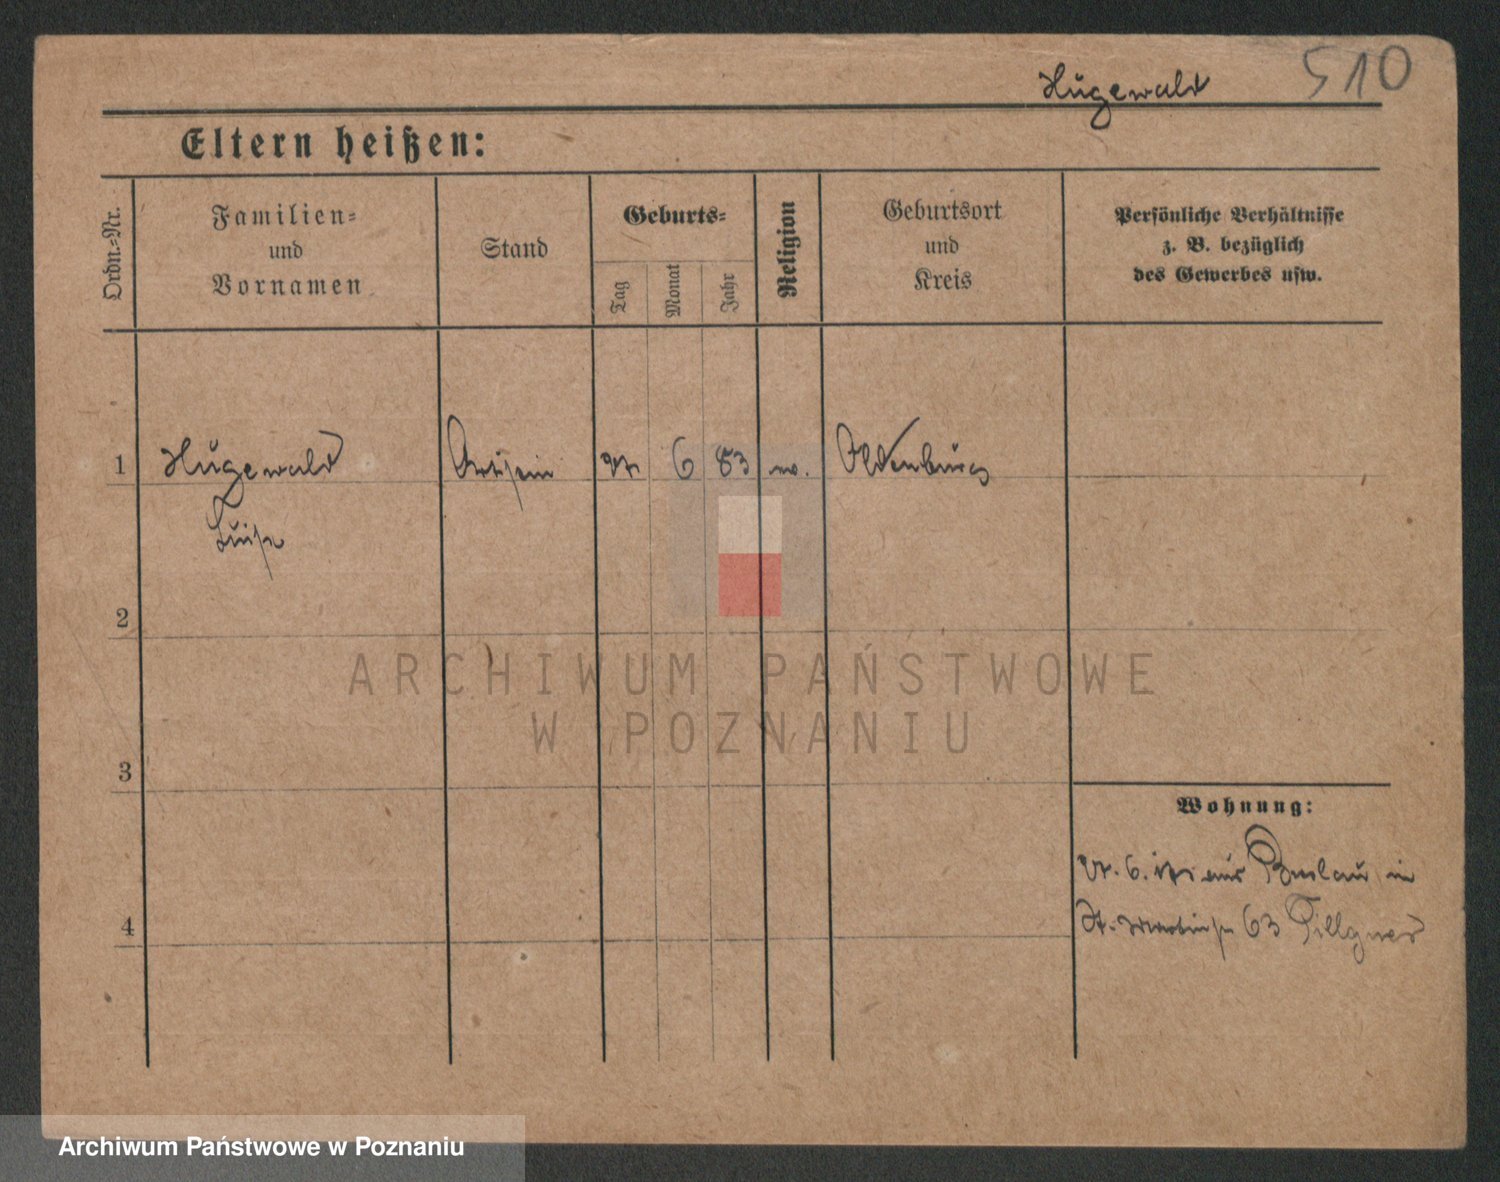 Hugewald 510
Eltern heißen:
Ordn.=Nr.
Familien=
und
Vornamen
Stand
Geburts=
Tag
Monat
Jahr
Religion
Geburtsort
und
Kreis
Persönliche Verhältnisse
z. B. bezüglich
des Gewerbes usw.
1 Hugewald Artistin 6 83 Oldenburg
Luise
2
ARCHIWUM PAŃSTWOWE
W POZNANIU
3
Wohnung:
6. aus Breslau in
St. Martinstr 63 Tillgner
4
Archiwum Państwowe w Poznaniu